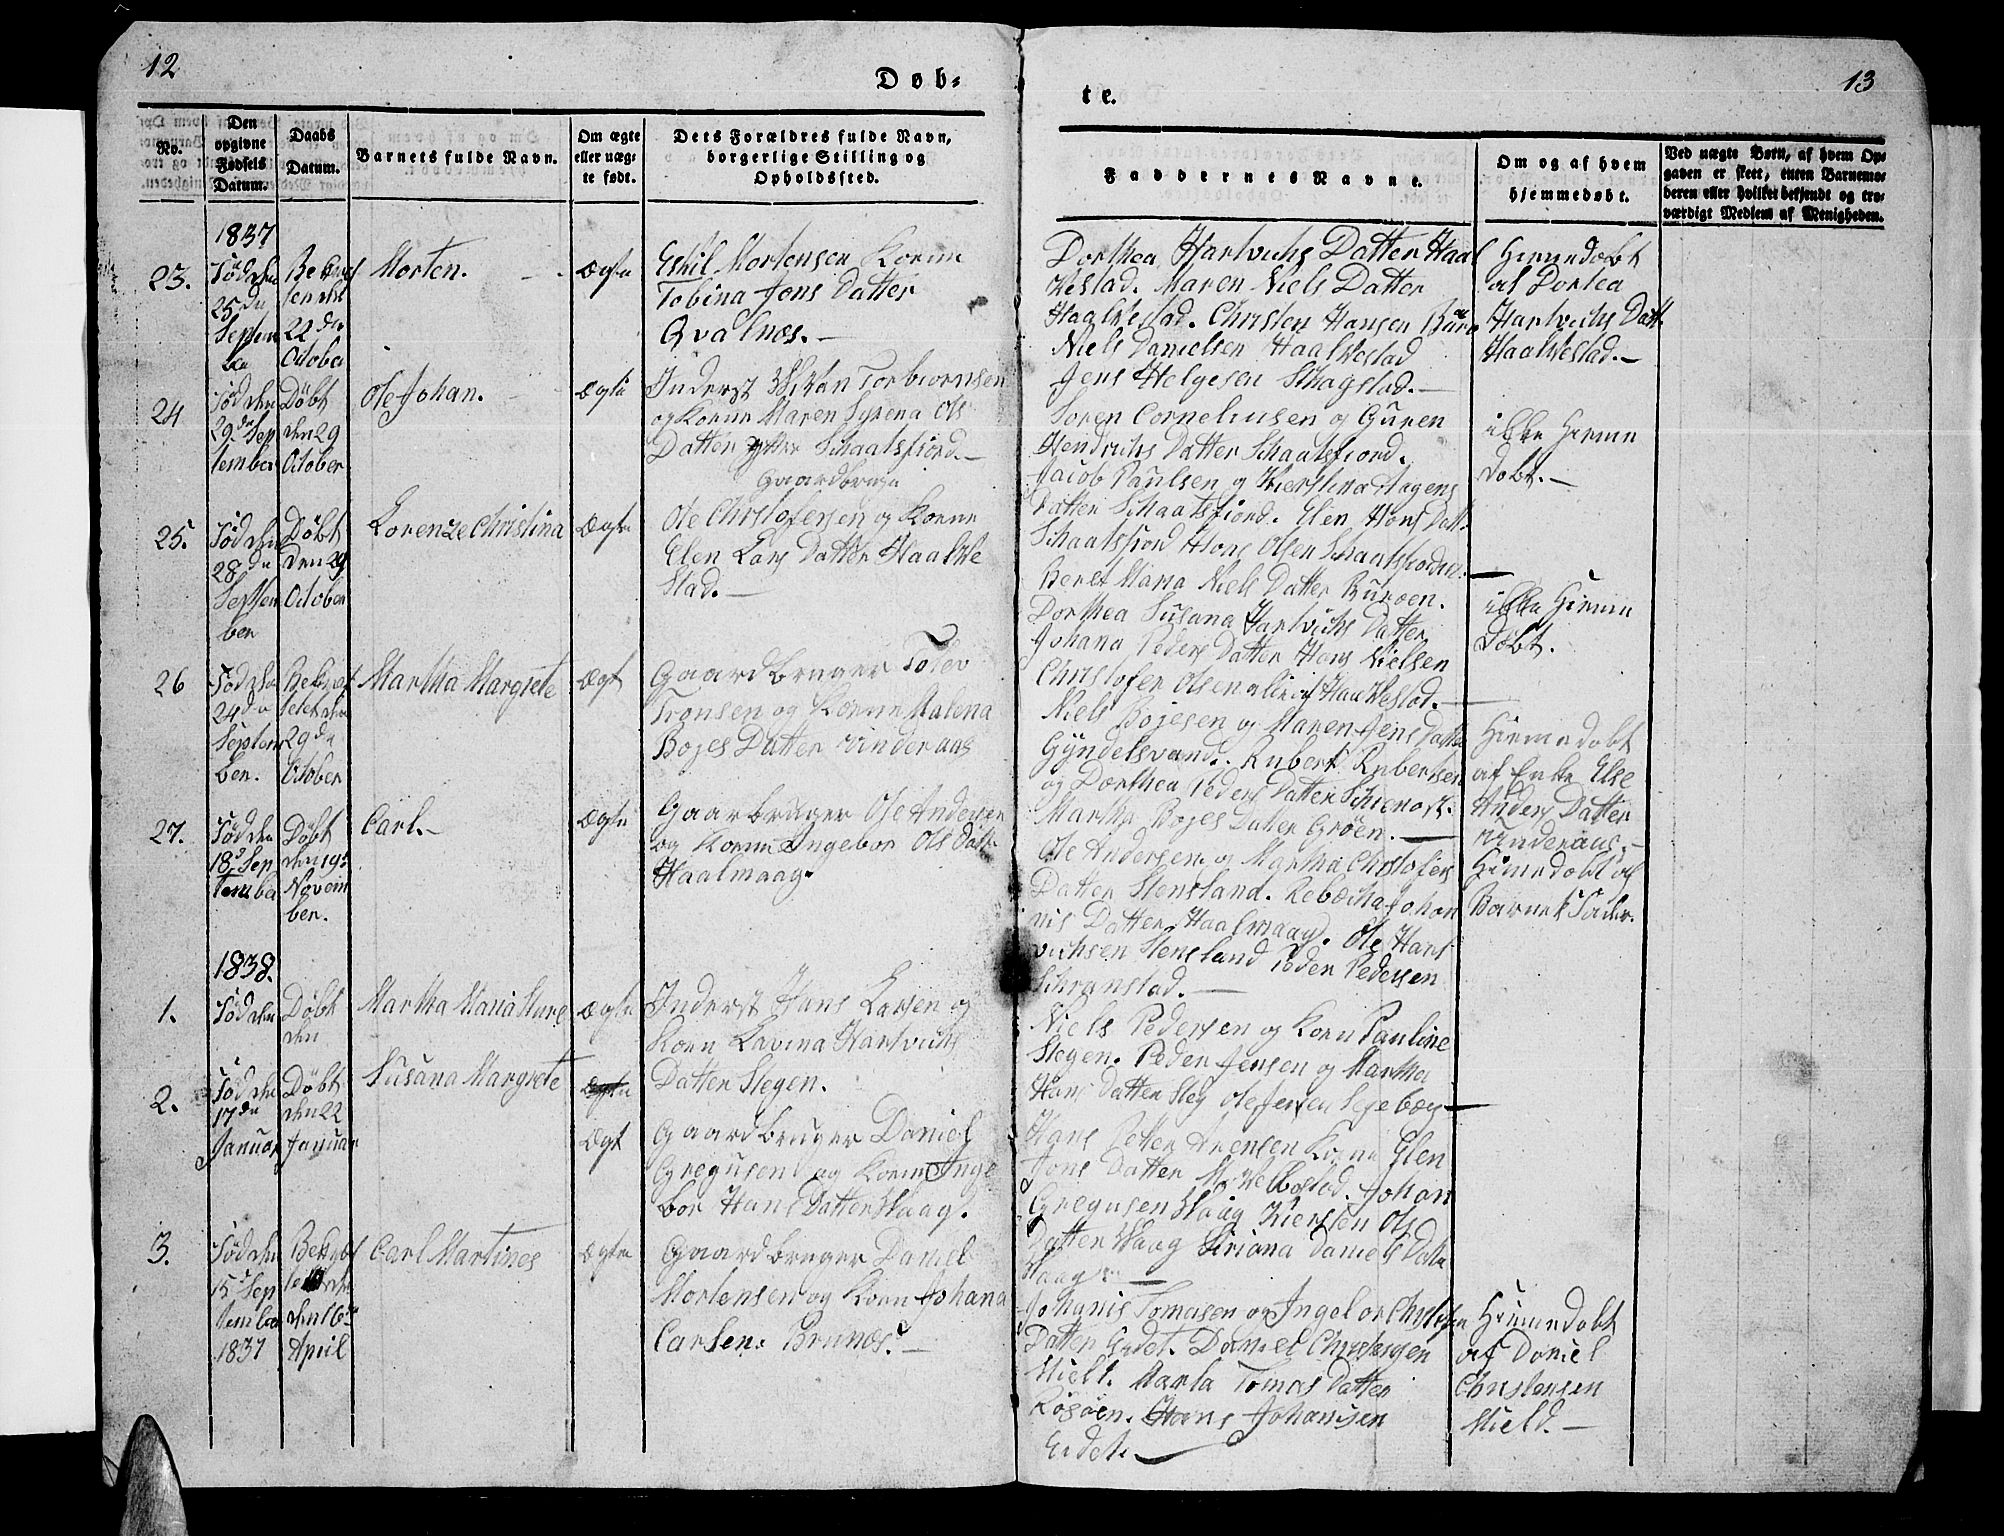 12
Døb-
te.
13
No.
Den opgivne Fødsels Datum.
Daabs Datum.
Barnets fulde Navn.
Om ægte eller uægte født.
Dets Forældres fulde Navn, borgerlige Stilling og Opholdssted.
Faddernes Navne.
Om og af hvem hjemmedøbt.
Ved uægte Børn, af hvem Opgaven er skeet, enten Barnemoderen eller hvilket bekjendt og troværdigt Medlem af Menigheden.
1837
23.
Fød den
25de
Septem
ber
22de
October
Morten.
Ægte
Eskil Mortensen Konene
Tobina Jons Datter
Qvalnæs.
Dorthea Hartvichs Datter Haal
Vestad. Maren Niels Datter
Haalvestad. Christen Hansen
Niels Danielsen Haalvestad
Jens Helgesen Skagstad.
Himedøbt
af Dortea
Hartvichs Datt.
Haalvestad.
24
Fød den
29de Sep
tember
Døbt
den 29
October
Ole Johan.
Ægte
Inderst Torbiornsen
og Kone Maren Syrena Ols
Datter Schaatsfiord.
Soren Corneliusen og Guren
Hendrichs Datter Schaatsfiord.
Jacob Paulsen og Kierstina Aagens
Datter Schaatsfiord. Elen Hans Datt.
Schaatsfiord Hans Olsen Schaatsfiorden.
ikke Hieme
døbt.
25.
Fød den
28de
Septem
ber
Døbt
den 29
October
Lorenze Christina
Ægte
Gaardbruger
Ole Christofersen og Kone
Elen Lars Datter Haalve
stad.
Beret Maria Niels Datter Burøen.
Dorthea Susana Hartvichs Datter
Johana Peders Datter Hans Nielsen
Christofer Olsen alle af Haalvestad.
ikke Hieme
døbt.
26
Fød den
24de
Septem
ber.
29de
October
Martha Margrete
Ægt
Gaardbruger Tolev
Tronsen og Kone Malena
Bojes Datter Vinderaas
Niels Bojesen og Maren Jens Datter
Gyndelsvand. Rubert Rubertsen
og Dorthea Peders Datter
Martha Bojes Datter Grøen.
Himedøbt
af Enke Else
Anders Datter
Vinderaas.
27.
Fød den
18de Sep
tember
Døbt
den 19de
Novem
ber.
Carl.
Ægte
Gaarbruger Ole Andersen
og Kone Ingebor Ols Datt.
Haalmaag.
Ole Andersen og Martha Christofers
Datter Stensland. Rebecha Johan
nis Datter Haalmaag. Ole Hart
vichsen Stensland Peder Pedersen
Schranstad.
Himedøbt af
Barnets Fader.
1838.
1.
Fød den
Døbt
den
Martha Maria
Ægte
Inderst Hans Larsen og
Kone Lavina Hartvichs
Datter Stegen.
Niels Pedersen og Kone Pauline
Stegen. Peder Jensen og Martha
Hans Datter Steg Ole Jensen
2.
Fød den
17de
Januar
Døbt
den 22
Januar
Susana Margrete
Ægte
Ægt
Gaardbruger Daniel
Gregusen og Kone Inge
bor Hans Datter Vaag.
Hans Petter Arensen Kone Elen
Jons Datter Johan
Gregusen Vaag Kiersten Ols
Datter Vaag Siriana Daniels Datter
Vaag
3.
Fød den
15de Sep
tember
1837
den 16de
April
Carl Martines
Ægte
Gaardbruger Daniel
Mortensen og Kone Johana
Carlsen. Brunæs.
Johanis Tomasen og Ingebor Christofers
Datter Eidet. Daniel Christensen
Mield. Marta Tomas Datter
Røsøen. Hans Johanisen
Eidet.
Himedøbt
af Daniel
Christensen
Mield.